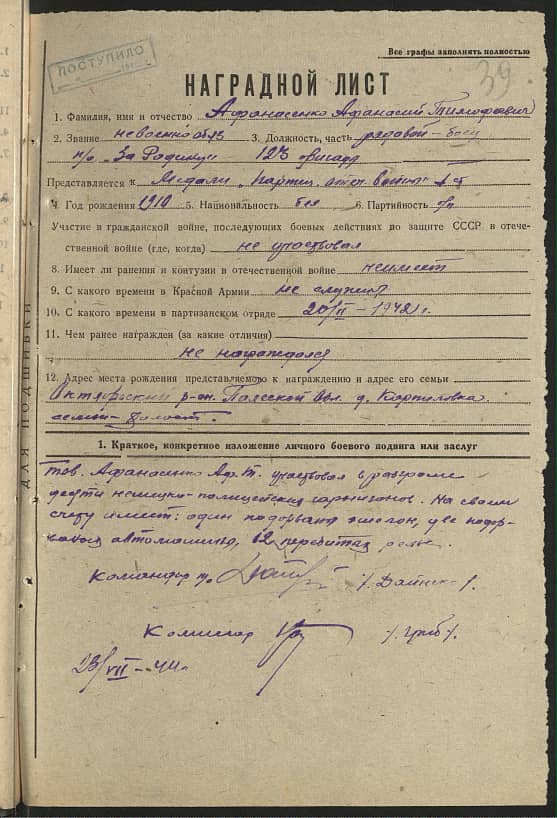 Все графы заполнять полностью
ПОСТУПИЛО
39.
НАГРАДНОЙ ЛИСТ
1. Фамилия, имя и отчество Афанасенко Афанасий Тимофеевич
2. Звание невоеннообяз 3. Должность, часть рядовой-боец
п/о "За Родину" 123 бригады
Представляется к Медали "Партиз. отеч. войны" I ст
4. Год рождения 1910 5. Национальность бел 6. Партийность б/п
Участие в гражданской войне, последующих боевых действиях по защите СССР в отече-
ственной войне (где, когда) не участвовал
8. Имеет ли ранения и контузии в отечественной войне неимеет
9. С какого времени в Красной Армии не служил
10. С какого времени в партизанском отряде 20/II-1942 г.
11. Чем ранее награжден (за какие отличия)
не награждался
12. Адрес места рождения представляемого к награждению и адрес его семьи
Октябрьский р-он. Полесской Обл. д. Карпиловка.
семьи-
1. Краткое, конкретное изложение личного боевого подвига или заслуг
тов. Афанасенко Аф. Т. участвовал в разгроме
девяти немецко-полицейских гарнизонов. На своем
счету имеет: один подорван эшелон, две подор-
автомашины, 12 перебитых рельс.
Командир о. /Дайнеко/.
Комиссар /Гриб/.
23/VII-44 г.
ДЛЯ ПОДШИВКИ